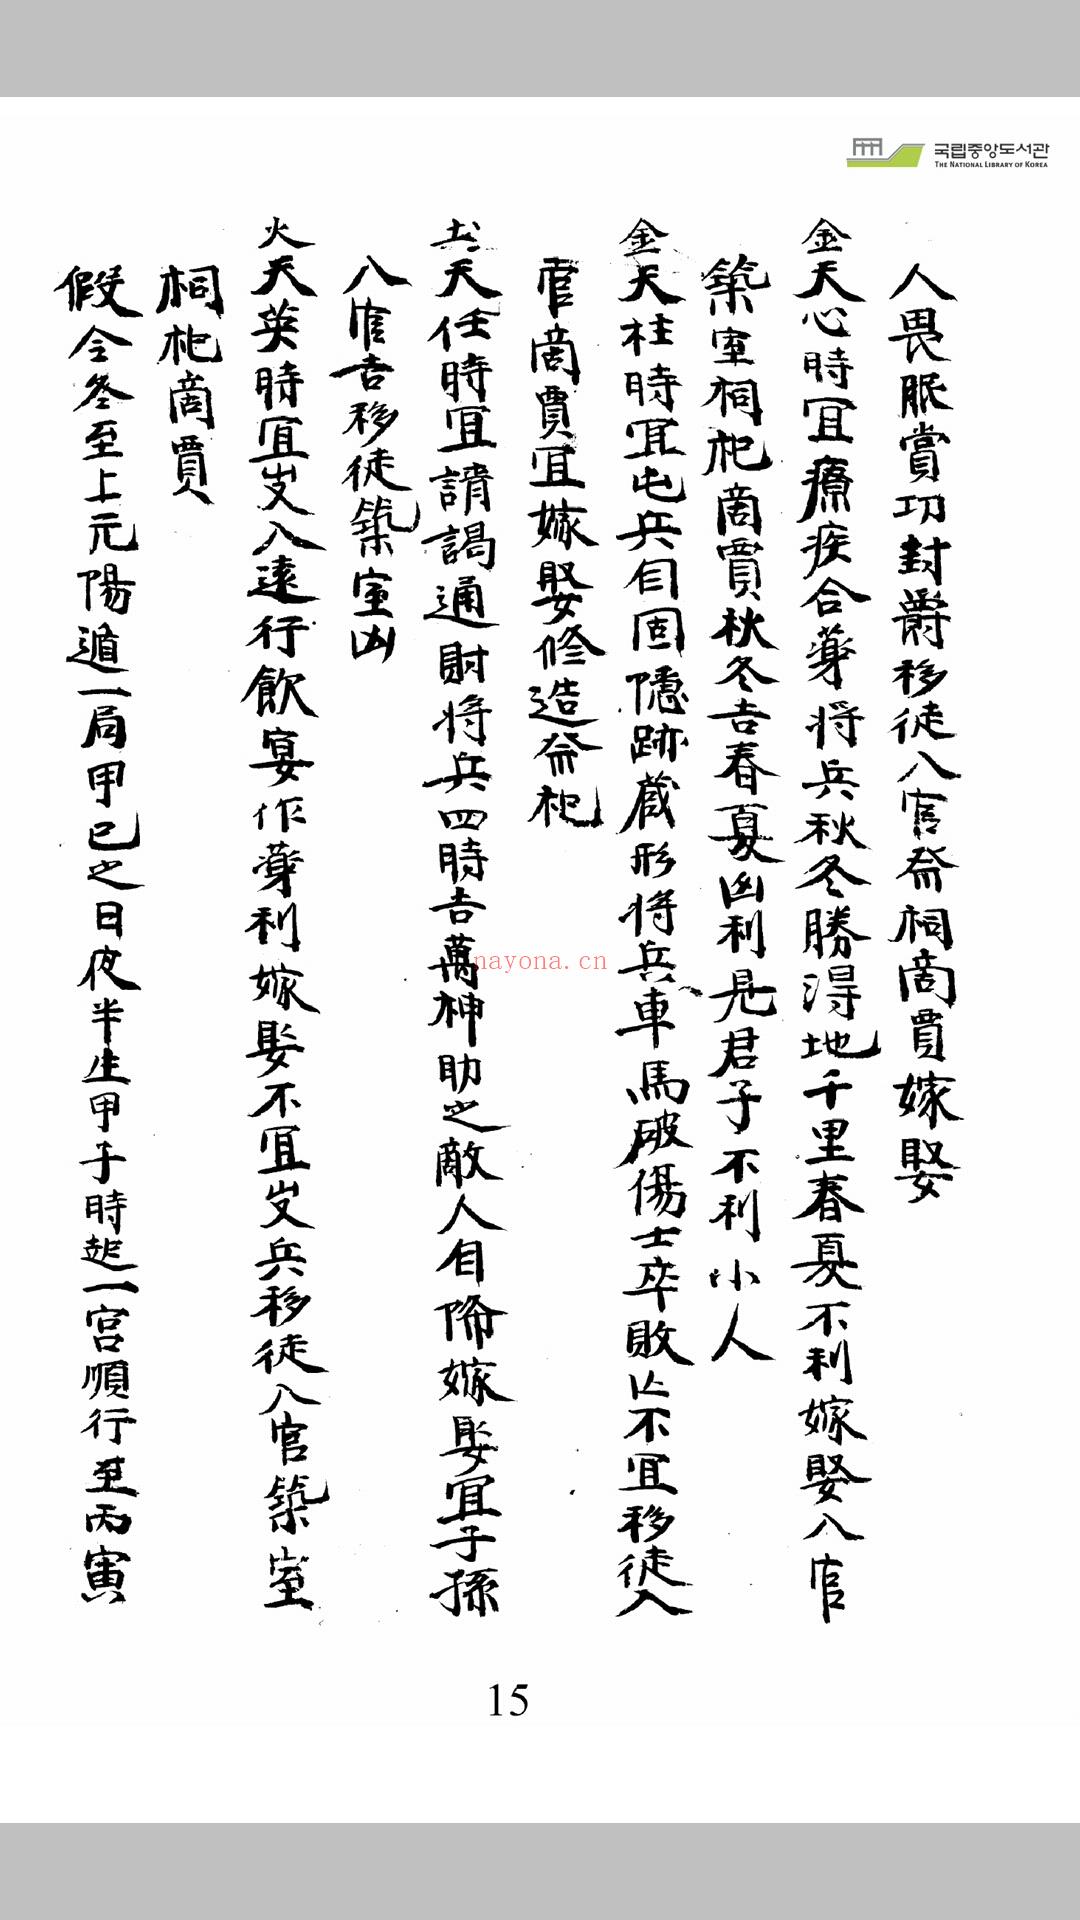 국립중앙도서관
THE NATIONAL LIBRARY OF KOREA
人畏服賞功封爵移徙入官祭祠商賈嫁娶
金天心時宜療疾合藥将兵秋冬勝得地千里春夏不利嫁娶入官
築室祠祀商賈秋冬吉春夏凶利見君子不利小人
金天柱時宜屯兵自固隱跡蔵形将兵車馬破傷士卒敗亡不宜移徙入
官商賈宜嫁娶修造祭祀
土天任時宜請謁通財将兵四時吉萬神助之敵人自降嫁娶宜子孫
入官吉移徙築室凶
火天英時宜出入遠行飲宴作藥利嫁娶不宜出兵移徙入官築室
祠祀商賈
假令冬至上元陽遁一局甲己之日夜半生甲子時起一宮順行至丙寅
nayona.cn
15